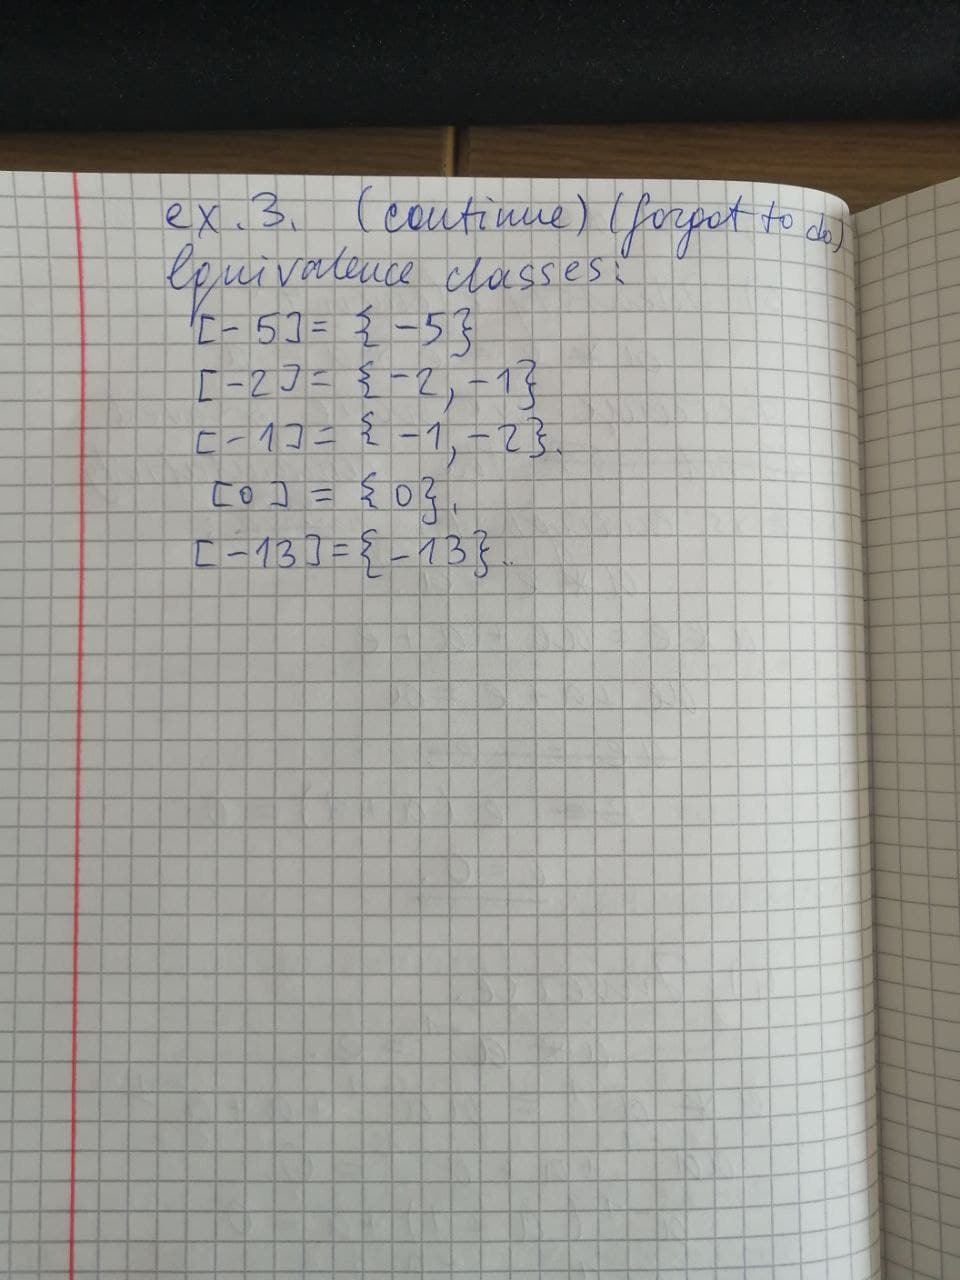 ex. 3. (continue) (forgot to do)
Equivalence classes:
[-5] = {-5}
[-2] = {-2, -1}
[-1] = {-1, -2}.
[0] = {0}.
[-13] = {-13}..